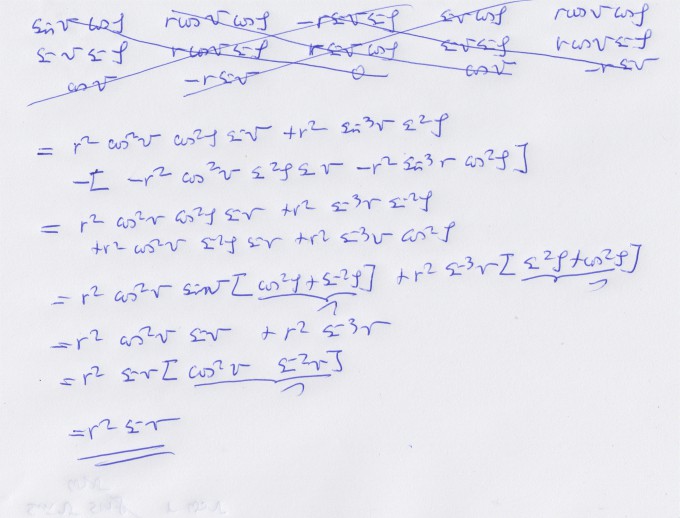 sin v cos φ r cos v cos φ -r sin v sin φ sin v cos φ r cos v cos φ
sin v sin φ r cos v sin φ r sin v cos φ sin v sin φ r cos v sin φ
cos v -r sin v 0 cos v -r sin v
= r² cos²v cos²φ sin v + r² sin³v sin²φ
-[ -r² cos²v sin²φ sin v - r² sin³v cos²φ ]
= r² cos²v cos²φ sin v + r² sin³v sin²φ
+r² cos²v sin²φ sin v + r² sin³v cos²φ
= r² cos²v sin v [ cos²φ + sin²φ ] + r² sin³v [ sin²φ + cos²φ ]
= r² cos²v sin v + r² sin³v
= r² sin v [ cos²v sin²v ]
= r² sin v